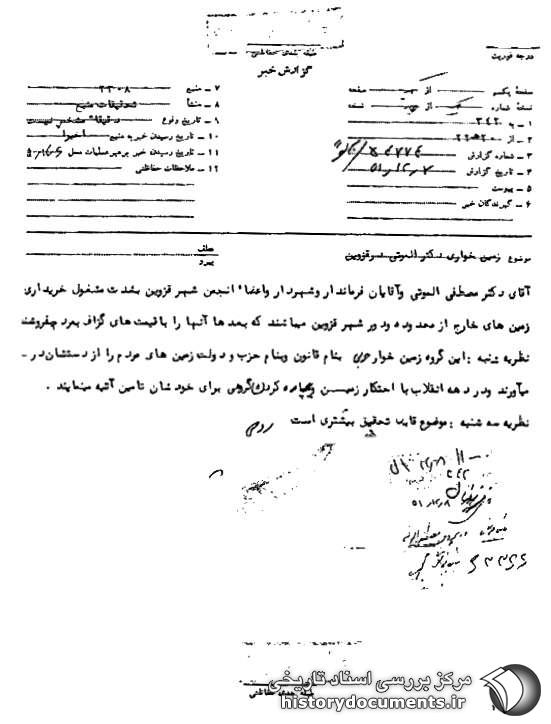 طبقه بندی حفاظتی
گزارش خبر
درجه فوریت
صفحه یکم از صفحه
نسخه شماره از نسخه
۱ – به ۳۴۲
۲ – از ۲۲ه۲۰
۳ – شماره گزارش
۴ – تاریخ گزارش ۵۱/۲/۷
۵ – پیوست
۶ – گیرندگان خبر
۷ – منبع ۲۳۰۸
۸ – منشأ تحقیقات منبع
۱ – تاریخ وقوع دقیقا" مشخص نیست
۱۰ – تاریخ رسیدن خبر به منبع اخیرا"
۱۱ – تاریخ رسیدن خبر برهبر عملیات محل
۱۲ – ملاحظات حفاظتی
موضوع زمین خواری دکتر الموتی در قزوین
عطف
پیرو
آقای دکتر مصطفی الموتی وآقایان فرماندار وشهردار واعضاء انجمن شهر قزوین بشدت مشغول خریداری
زمین های خارج از محدوده ودور شهر قزوین میباشند که بعدها آنها را باقیمت های گزاف بمردم بفروشند
نظریه شنبه : این گروه زمین خوار بنام قانون وبنام حزب و دولت زمین های مردم را از دستشان در –
میآورند ودر دهه انقلاب با احتکار زمین و بیچاره کردن گروهی برای خودشان تامین آتیه مینمایند .
نظریه سه شنبه : موضوع قابل تحقیق بیشتری است
طبقه بندی حفاظتی
مرکز بررسی اسناد تاریخی
historydocuments.ir